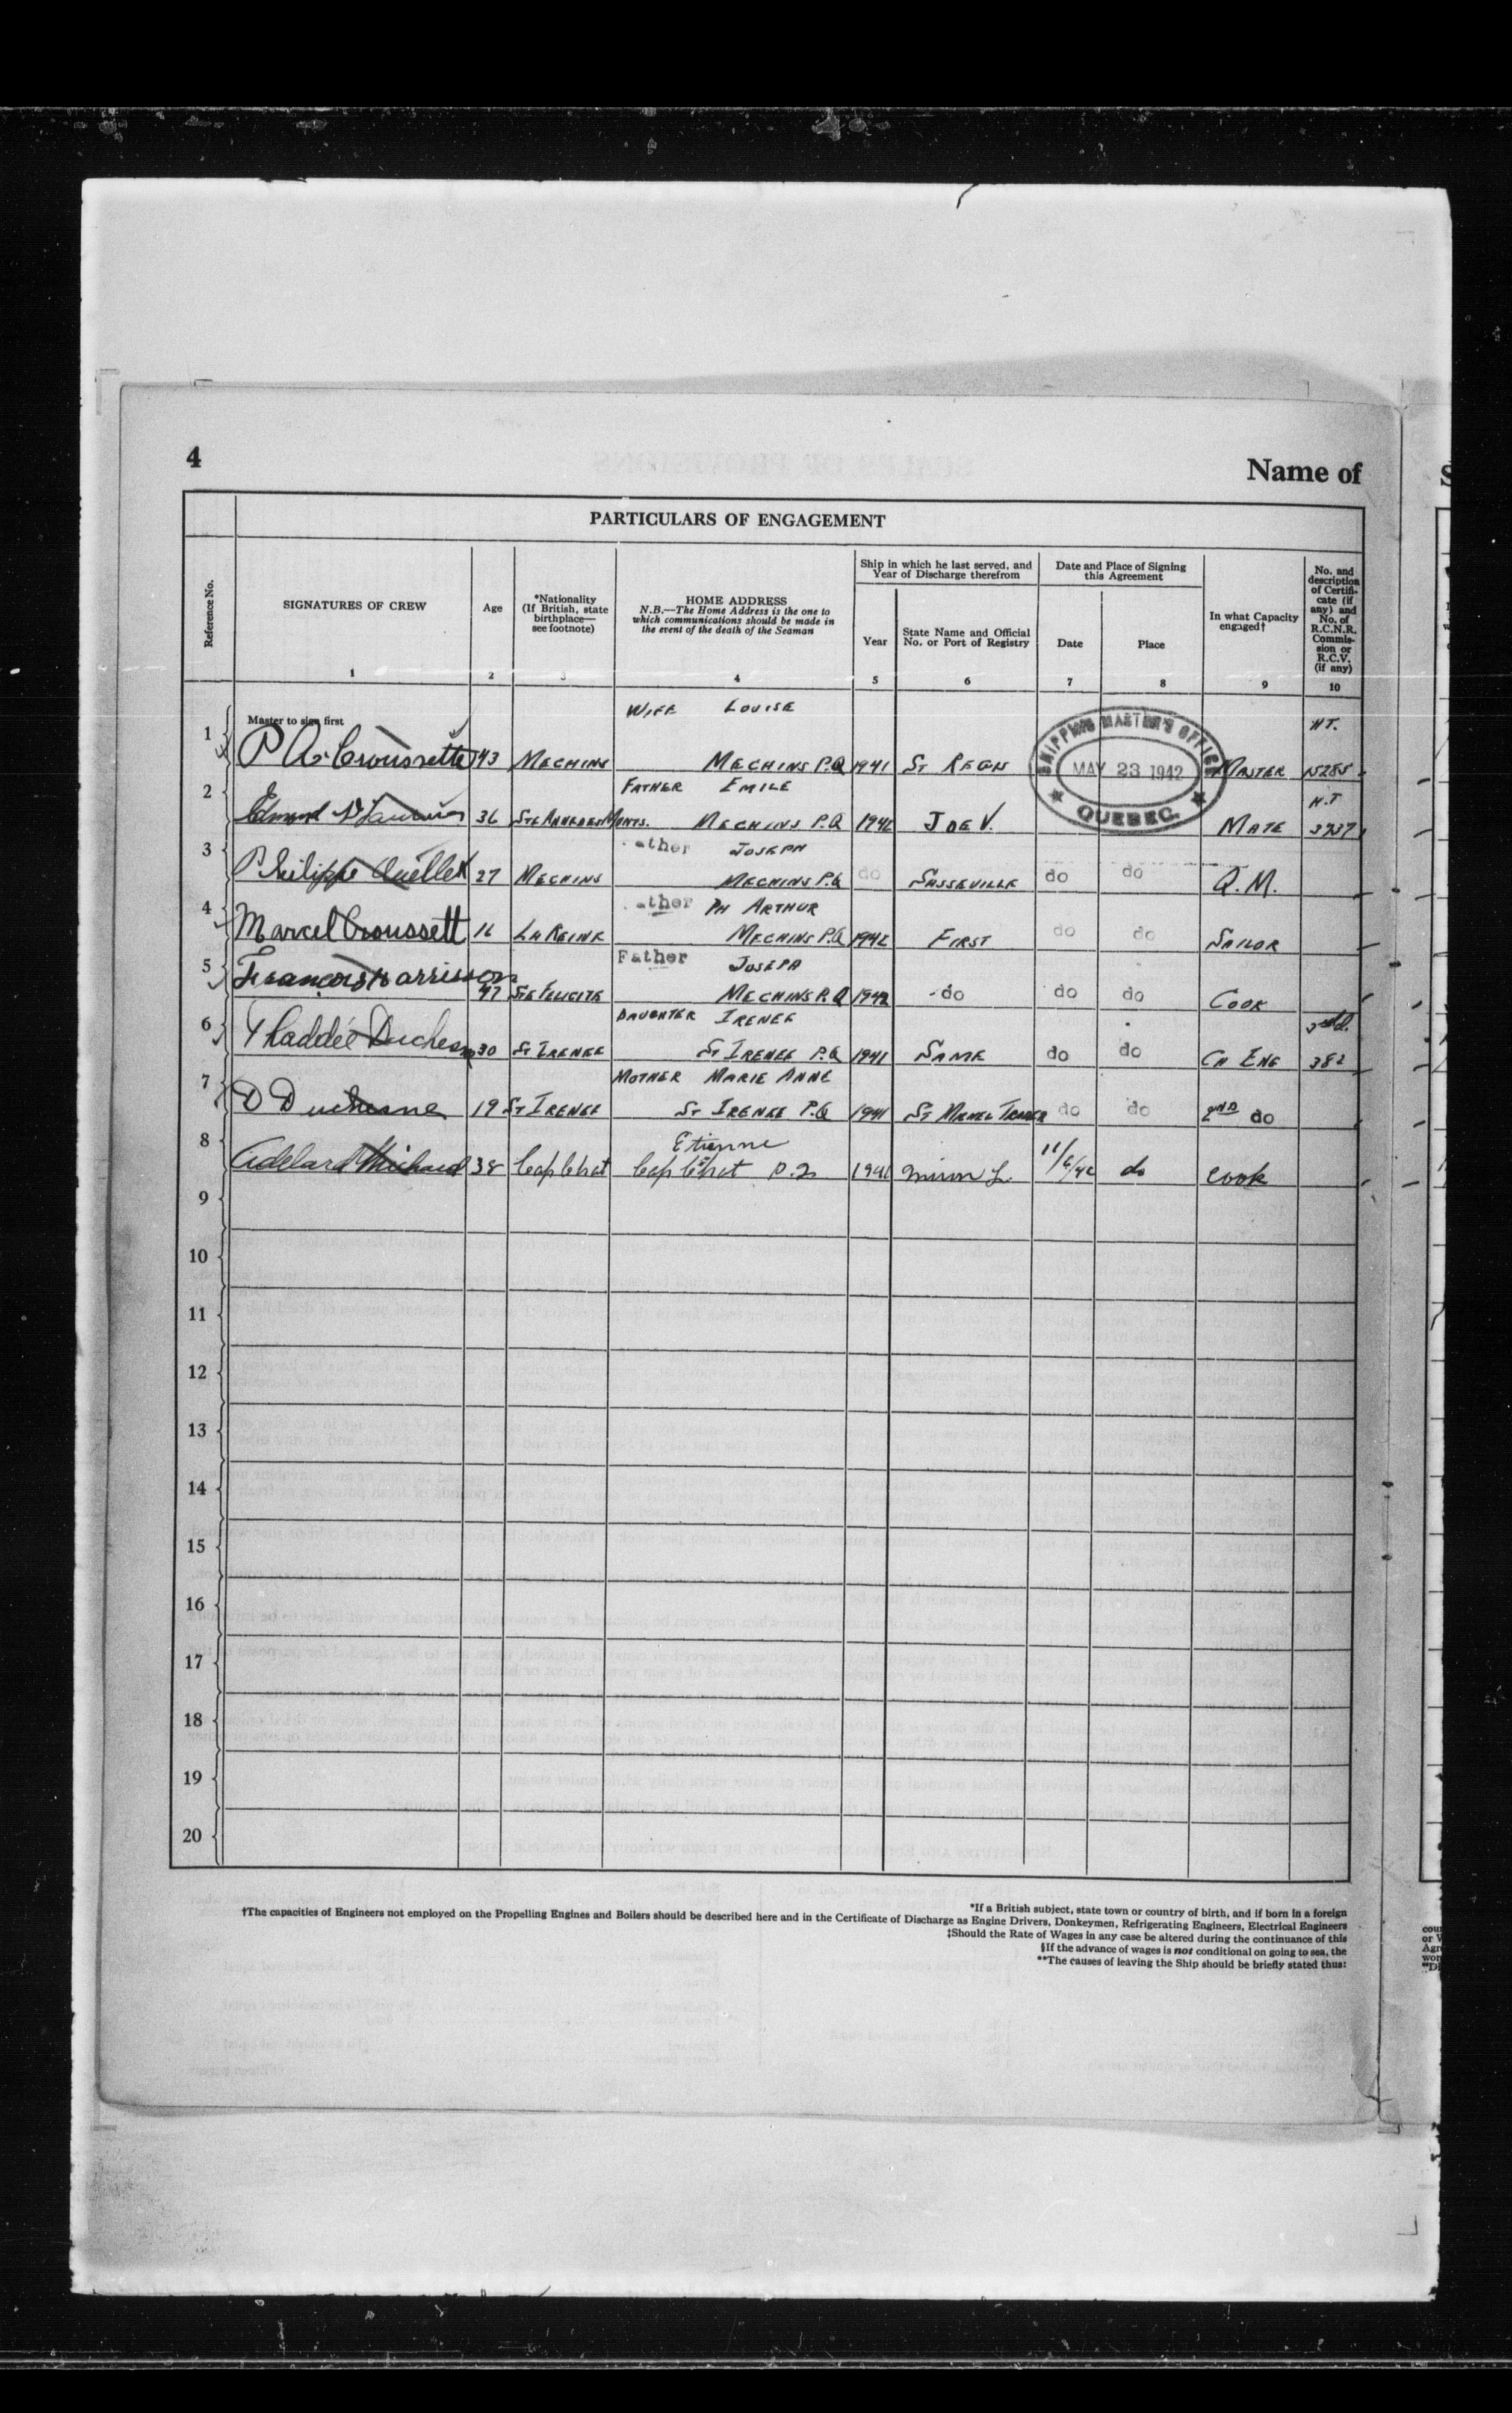 4
Name of
PARTICULARS OF ENGAGEMENT
Reference No.
SIGNATURES OF CREW
1
Age
2
*Nationality
(If British, state
birthplace—
see footnote)
3
HOME ADDRESS
N.B.—The Home Address is the one to
which communications should be made in
the event of the death of the Seaman
4
Ship in which he last served, and
Year of Discharge therefrom
Year
5
State Name and Official
No. or Port of Registry
6
Date and Place of Signing
this Agreement
Date
7
Place
8
In what Capacity
engaged†
9
No. and
description
of Certifi-
cate (if
any) and
No. of
R.C.N.R.
Commis-
sion or
R.C.V.
(if any)
10
WIFE LOUISE
H.T.
Master to sign first
1 P A Croussette 43 MECHINS MECHINS P.Q 1941 ST REGIS MASTER 15285
SHIPPING MASTER'S OFFICE
MAY 23 1942
QUEBEC.
FATHER EMILE
H.T
2 36 STE ANNE DES MONTS. MECHINS P.Q JOE V. MATE 3737
Father JOSEPH
3 Philippe Ouellet 27 MECHINS MECHINS P.Q do SASSEVILLE do do Q.M.
Father PH ARTHUR
4 Marcel Croussett 16 LA REINE MECHINS P.Q 1942 FIRST do do SAILOR
Father JOSEPH
5 Francois Harrisson 47 STE FELICITE MECHINS P.Q 1942 do do do COOK
DAUGHTER IRENEE
6 Thaddée Duchesne 30 ST IRENEE ST IRENEE P.Q 1941 SAME do do CH ENG 382
MOTHER MARIE ANNE
7 D Duchesne 19 ST IRENEE ST IRENEE P.Q 1941 do do 2ND do
Etienne
8 Adelard Michaud 38 Cap Chat Cap Chat P.Q 1941 Miron L. 11/6/42 do Cook
9
10
11
12
13
14
15
16
17
18
19
20
*If a British subject, state town or country of birth, and if born in a foreign
†The capacities of Engineers not employed on the Propelling Engines and Boilers should be described here and in the Certificate of Discharge as Engine Drivers, Donkeymen, Refrigerating Engineers, Electrical Engineers
‡Should the Rate of Wages in any case be altered during the continuance of this
§If the advance of wages is not conditional on going to sea, the
**The causes of leaving the Ship should be briefly stated thus: